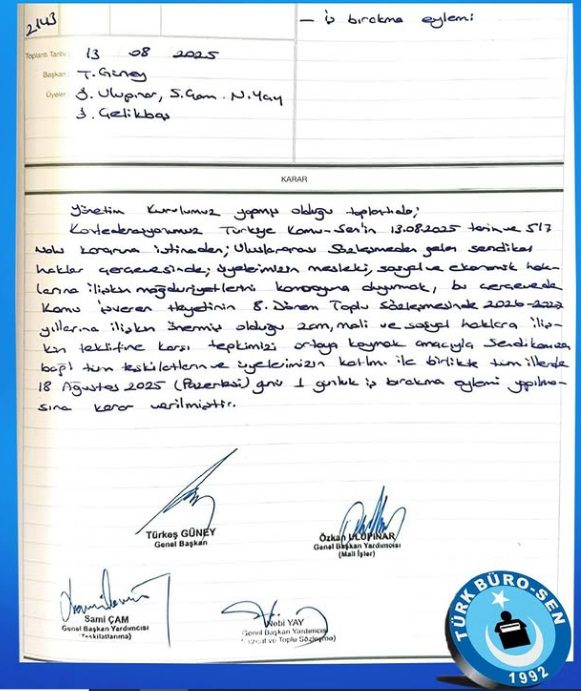 2143
— iş bırakma eylemi
Toplantı Tarihi: 13 08 2025
Başkan: T. Güney
Üyeler: Ö. Ulupınar, S. Çam. N. Yay
Çelikbaş
KARAR
Yönetim Kurulumuz yapmış olduğu toplantıda;
Konfederasyonumuz Türkiye Kamu-Sen'in 13.08.2025 tarih ve 517
Nolu kararına istinaden; Uluslararası Sözleşmeden gelen sendikal
haklar çerçevesinde; üyelerimizin mesleki, sosyal ve ekonomik hak-
larına ilişkin mağduriyetlerini kamuoyuna duyurmak, bu çerçevede
Kamu İşveren Heyetinin 8. Dönem Toplu Sözleşmesinde 2026-2027
yıllarına ilişkin önermiş olduğu zam, mali ve sosyal haklara iliş-
kin teklifine karşı tepkimizi ortaya koymak amacıyla Sendikamıza
bağlı tüm teşkilatların ve üyelerimizin katılımı ile birlikte tüm illerde
18 Ağustos 2025 (Pazartesi) günü 1 günlük iş bırakma eylemi yapılma-
sına karar verilmiştir.
Türkeş GÜNEY
Genel Başkan
Özkan ULUPINAR
Genel Başkan Yardımcısı
(Mali İşler)
Sami ÇAM
Genel Başkan Yardımcısı
(Teşkilatlanma)
Nebi YAY
Genel Başkan Yardımcısı
ve Toplu Sözleşme)
TÜRK BÜRO-SEN
1992